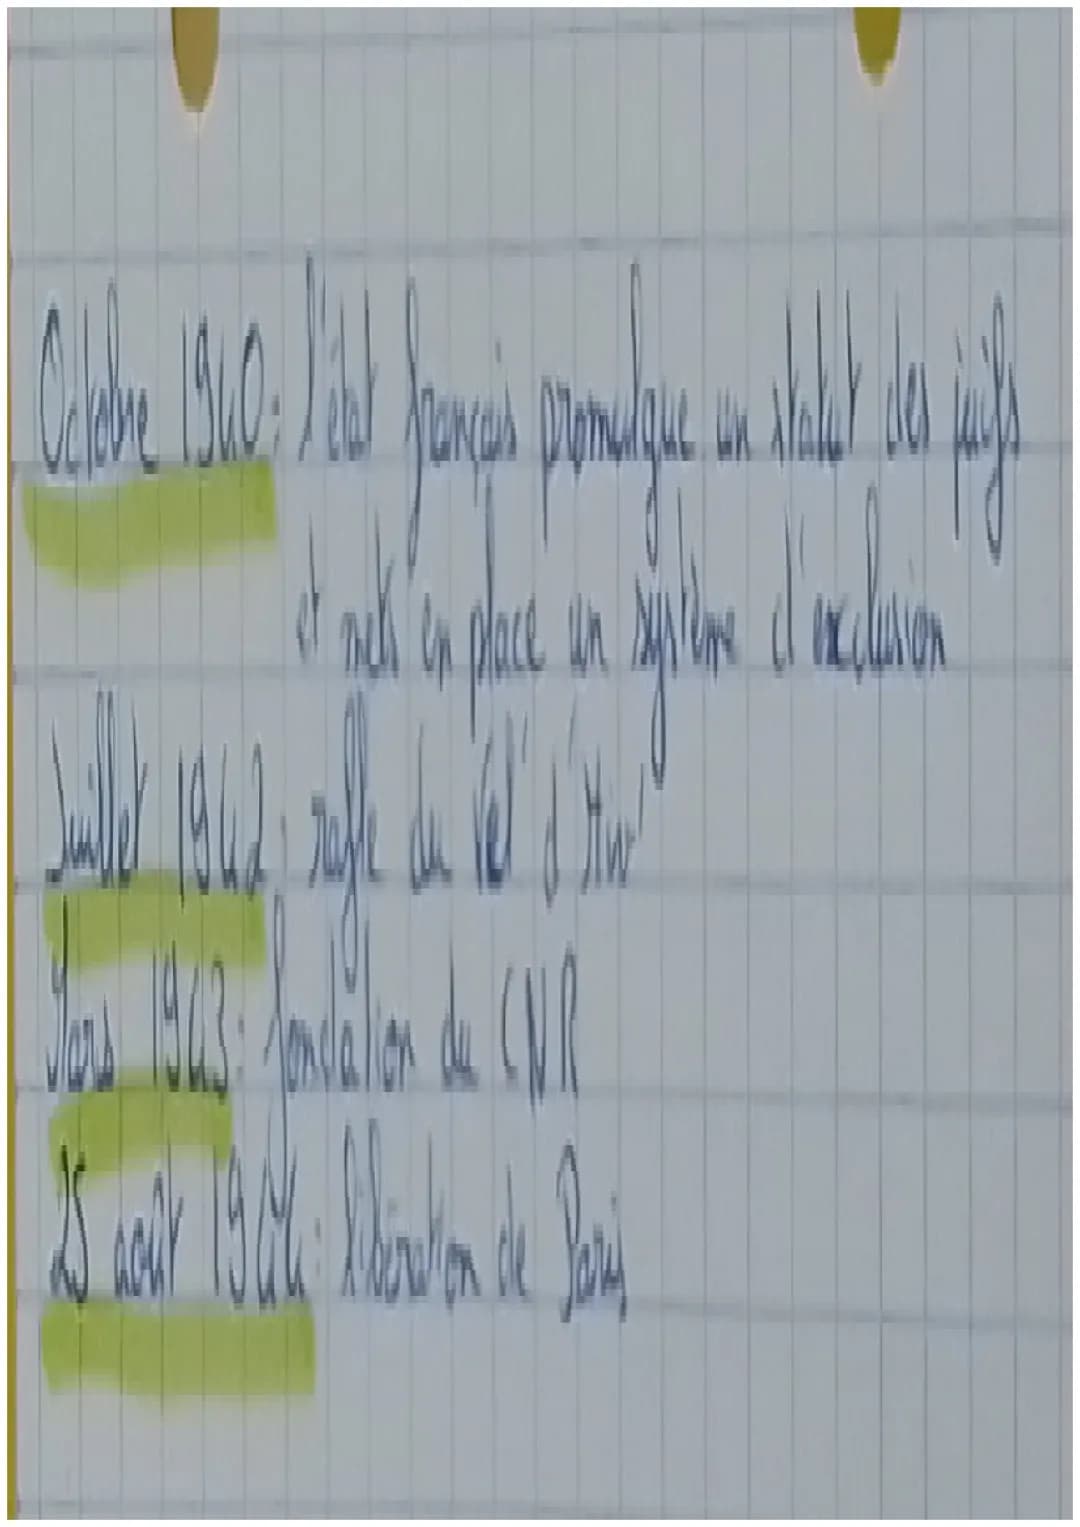 Octobre 1940: l'état français promulgue un statut des juifs
et mets en place un système d'exclusion
Juillet 1942: rafle du Vel' d'Hiv'
Mars 1943: fondation du CNR
25 août 1944: libération de Paris